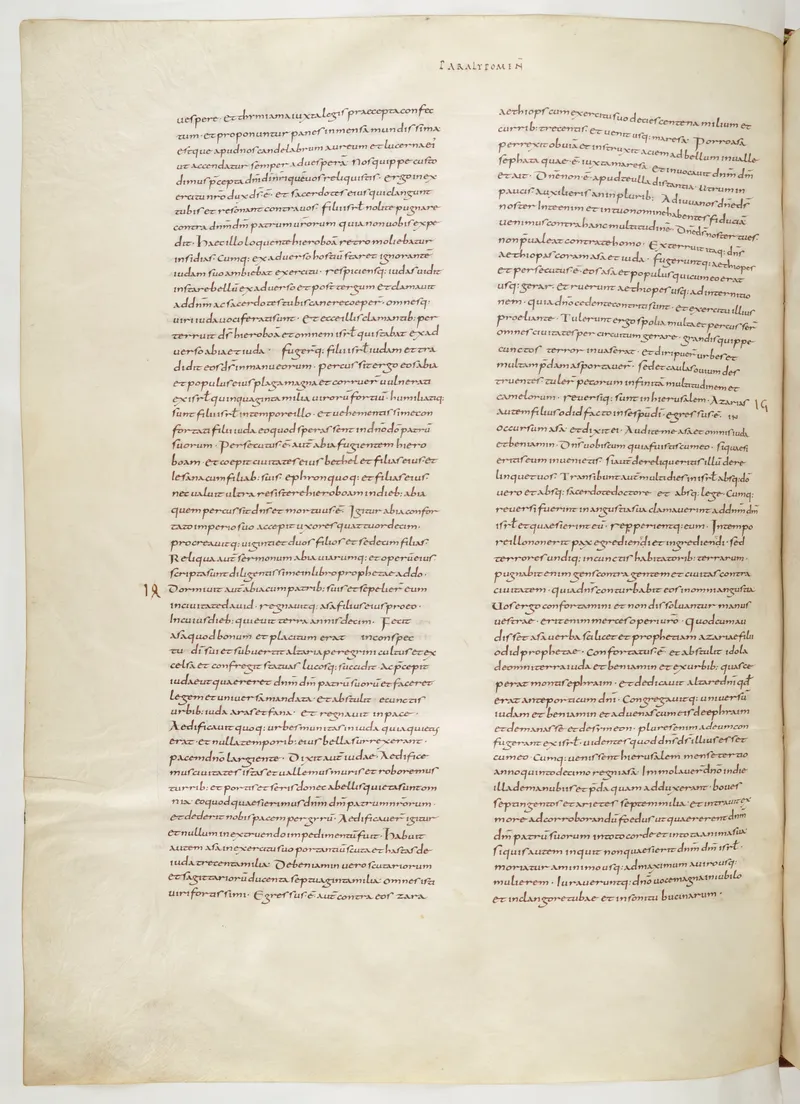 PARALYPOMIÑ
uespere· et thymiama iuxta legis praecepta confec
tum· et proponuntur panes in mensa mundissima
estque apud nos candelabrum aureum et lucernae ei'
ut accendatur semper ad uesperā· Nos quippe custo
dimus p̄cepta dn̄i dī nr̄i quē uos reliquistis· ergo in ex
ercitu nr̄o dux d̄s ē· et sacerdotes eius qui clangunt
tubis et resonant contra uos· filii isrt̄ nolite pugnare
contra dn̄m dm̄ patrum urōrum quia non uobis expe
dit· Haec illo loquente hieroboā retro moliebatur
insidias· Cumq: ex aduerso hostiū staret ignorantē
iudam suo ambiebat exercitu· respiciensq: iudas uidit
instare bellū ex aduerso et post tergum et clamauit
ad dn̄m ac sacerdotes tubis canere coeper̄· omnesq:
uiri iuda uociferati sunt· Et ecce illis clamantib: per
terruit d̄s hieroboā et omnem isrt̄ qui stabat ex ad
uerso abia et iuda· fugerq: filii isrt̄ iudam et tra
didit eos d̄s in manu eorum· percussit ergo eos abia
et populus eius plaga magna et corruer̄ uulnerati
ex isrt̄ quinquaginta milia uirorū fortiū· humiliatiq:
sunt filii isrt̄ in tempore illo· et uehementissime con
fortati filii iuda eo quod sperassent in dn̄o dō patrū
suorum· Persecutus ē aut̄ abia fugientem hiero
boam et coepit ciuitates eius bethel et filias eius· et
lesana cum filiab: suis· ephron quoq: et filias eius·
nec ualuit ultra resistere hieroboam in dieb: abia
quem percussit dn̄s et mortuus ē· Igitur abia confor
tato imperio suo accepit uxores quattuordecim·
procreauitq: uiginti et duos filios et sedecim filias·
Reliqua aut̄ sermonum abia uiarumq: et operū eius
scripta sunt diligentissime in libro prophetae addo·
Dormiuit aut̄ abia cum patrib: suis et sepelier̄ eum
in ciuitate dauid· regnauitq: asa filius eius pro eo·
In cuius dieb: quieuit terra annis decim· Fecit
asa quod bonum et placitum erat in conspec
tu dī sui et subuertit altaria peregrini cultus et ex
celsa et confregit statuas lucosq: succidit Ac p̄cepit
iudae ut quaereret dn̄m dm̄ patrū suorū et faceret
legem et uniuersa mandata· Et abstulit e cunctis
urbib: iuda aras et fana· et regnauit in pace·
Aedificauit quoq: urbes munitas in iuda quia quietus
erat· et nulla temporib: eius bella surrexerant·
pacem dn̄o largiente· Dixit aut̄ iudae· Aedifice
mus ciuitates istas et uallemus muris et roboremus
turrib: et portis et seris donec a bellis quieta sunt om
nia· eo quod quaesierimus dn̄m dm̄ patrum nr̄orum·
et dederit nobis pacem per gyrū· Aedificauer̄ igitur
et nullum in extruendo impedimentū fuit· Habuit
autem asa in exercitu suo portantiū scuta et hastas de
iuda trecenta milia· De beniamin uero scutariorum
et sagittariorū ducenta septuaginta milia· omnes isti
uiri fortissimi· Egressus ē aut̄ contra eos zara
aethiops cum exercitu suo decies centena milium et
currib: trecentis· et uenit usq: maresa· Porro asa
perrexit obuiā et instruxit aciem ad bellum in ualle
sephata quae ē iuxta maresa et inuocauit dn̄m dm̄
et ait· Dn̄e non ē apud te ulla distantia· utrum in
paucis auxilieris an in plurib: Adiuua nos dn̄e d̄s
noster In te enim et in tuo nomine habentes fiduciā
uenimus contra hanc multitudinē· Dn̄e d̄s noster tu es·
non p̄ualeat contra te homo· Exterruit itaq: dn̄s
aethiopas coram asa et iuda· fugeruntq: aethiopes
et persecutus ē eos asa et populus qui cum eo erat
usq: gerar· et ruerunt aethiopes usq: ad internitio
nem· quia dn̄o cedente contriti sunt· et exercitu illius
proeliante· Tulerunt ergo spolia multa et percusser̄
omnes ciuitates per circuitum gerare· grandis quippe
cunctos terror inuaserat· et diripuer̄ urbes et
multam p̄dam asportauer̄· sed et caulas ouium des
truentes tuler̄ pecorum infinitā multitudinem et
camelorum· reuersiq: sunt in hierusalem· Azarias
autem filius odid facto in se sp̄u dī· egressus ē in
occursum asa· et dixit ei· Audite me asa et omnis iuda
et beniamin· Dn̄s uobiscum quia fuistis cum eo· si quaesi
eritis eum inuenietis· si aut̄ dereliqueritis illū dere
linquet uos· Transibunt aut̄ multi dies in isrt̄ absq: dō
uero et absq: sacerdote doctore· et absq: lege· Cumq:
reuersi fuerint in angustia sua clamauerint ad dn̄m dm̄
isrt̄ et quaesierint eū· repperientq: eum· In tempo
re illo non erit pax egredienti et ingredienti· sed
terrores undiq: in cunctis habitatorib: terrarum·
pugnabit enim gens contra gentem et ciuitas contra
ciuitatem· quia dn̄s conturbabit eos in omni angustia
Uos ergo confortamini et non dissoluantur manus
uestrae· erit enim merces operi uro· Quod cum au
disset asa uerba scilicet et prophetiam azariae filii
odid prophetae· Confortatus ē· et abstulit idola
de omni terra iuda et beniamin et ex urbib: quas ce
perat montis ephraim· et dedicauit altare dn̄i qd̄
erat ante porticum dn̄i· Congregauitq: uniuersū
iudam et beniamin et aduenas cum eis de ephraim
et de manasse· et de symeon· plures enim ad eum con
fugerant ex isrt̄· uidentes quod dn̄s d̄s illius esset
cum eo· Cumq: uenissent hierusalem mense tertio
anno quinto decimo regni asa· Immolauer̄ dn̄o in die
illa de manubiis et p̄da quam adduxerant· boues
septingentos et arietes septem milia· et intrauit ex
more ad corroborandū foedus ut quaererent dn̄m
dm̄ patrū suorum in toto corde et in tota anima sua·
si quis autem inquit non quaesierit dn̄m dm̄ isrt̄·
moriatur a minimo usq: ad maximum a uiro usq: ad
mulierem· Iurauerunt q: dn̄o uoce magna in iubilo
et in clangore tubae et in sonitu bucinarum·